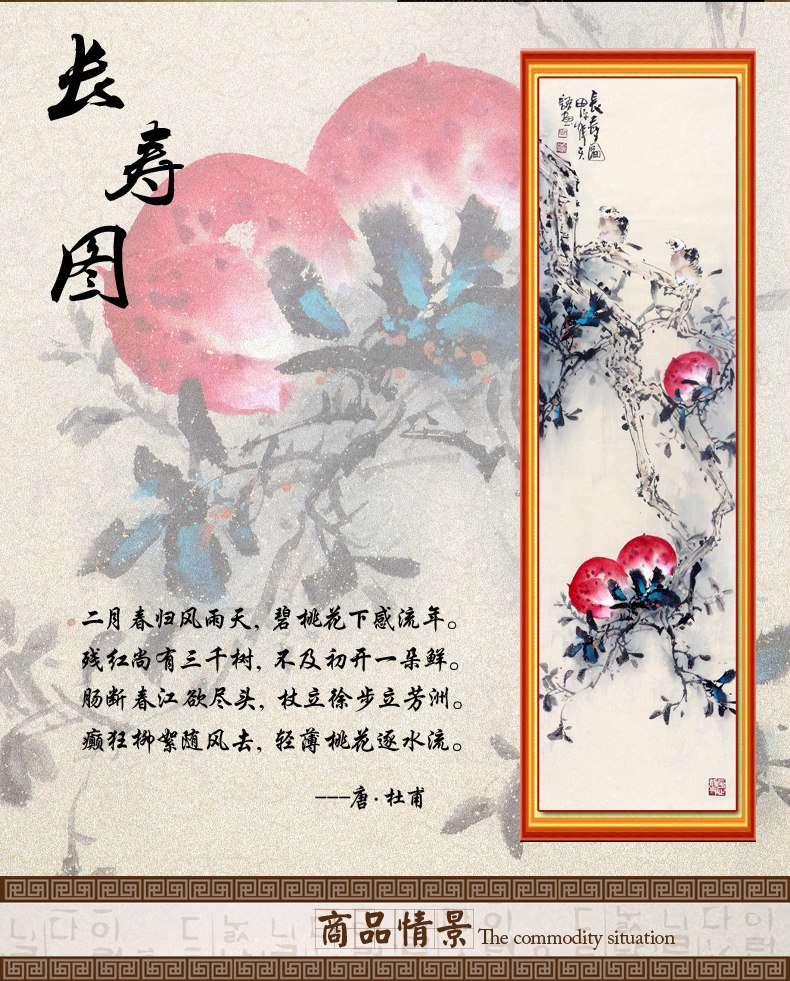 长寿图
長寿圖
二月春归风雨天，碧桃花下感流年。
残红尚有三千树，不及初开一朵鲜。
肠断春江欲尽头，杖立徐步立芳洲。
癫狂柳絮随风去，轻薄桃花逐水流。
---唐·杜甫
商品情景 The commodity situation